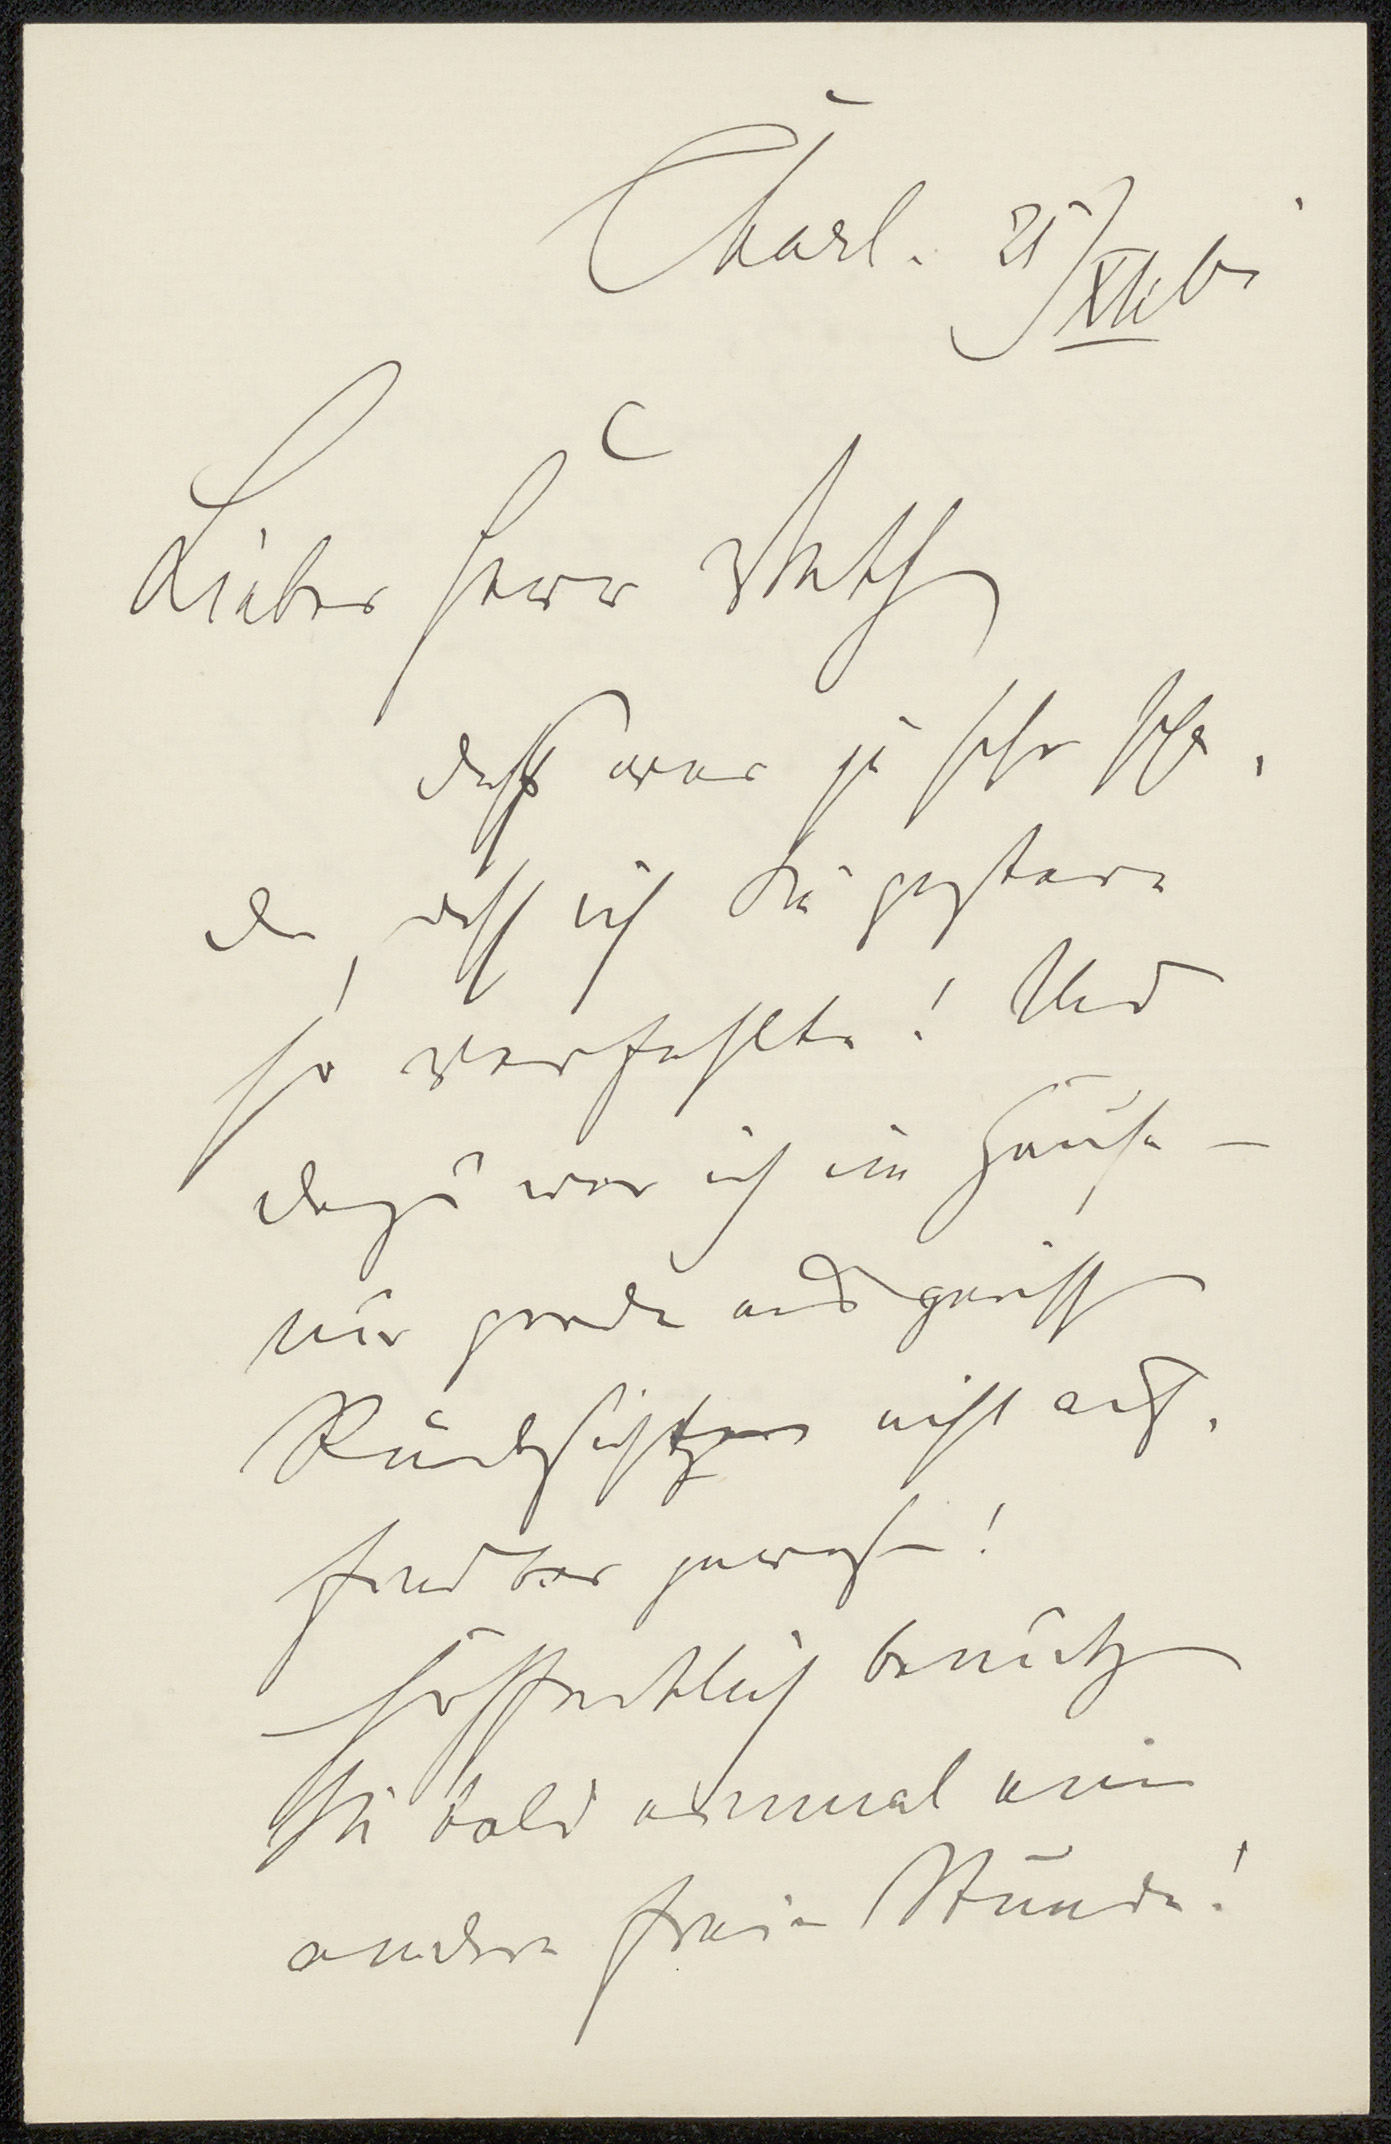 Charl. 21/XII
Lieber Herr Veth
dass war ja sehr scha-
de, dass ich Sie gestern
so verfehlte! Und
dazu war ich im Hause –
nur grade aus gewissen
Rücksichten nicht auf-
findbar gewesen!
Hoffentlich benutzen
Sie bald einmal eine
andere freie Stunde!